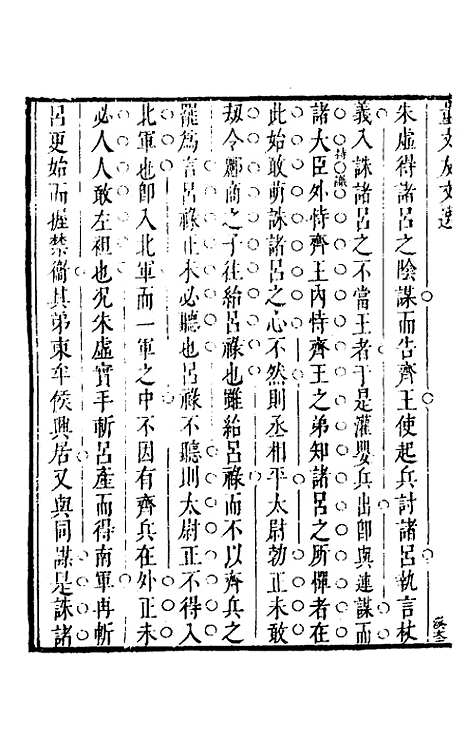 董文友文選
朱虛得諸呂之陰謀而告齊王使起兵討諸呂執言杖
義入誅諸呂之不當王者于是灌嬰兵出卽與連謀而
持議
諸大臣外恃齊王內恃齊王之弟知諸呂之所憚者在
此始敢萌誅諸呂之心不然則丞相平太尉勃正未敢
刼令酈商之子往紿呂祿也雖紿呂祿而不以齊兵之
罷爲言呂祿正未必聽也呂祿不聽則太尉正不得入
北軍也卽入北軍而一軍之中不因有齊兵在外正未
必人人敢左袒也况朱虛實手斬呂產而得南軍再斬
呂更始而握禁衞其弟東牟侯興居又與同謀是誅諸